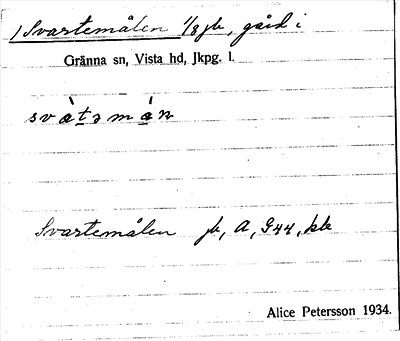 1) Svartemålen 1/8 jb, gård i
Gränna sn, Vista hd, Jkpg. l.
svàtəmàn
Svartemålen jb, A, G44, kb
Alice Petersson 1934.